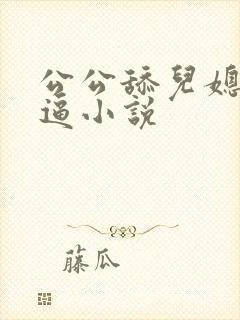 公公舔兒媳
逼小說
藤瓜